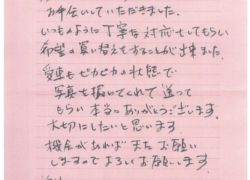 お伝いしていただきました。
いつものように丁寧な対応をしてもらい
希望の買い替えをすることが出来ました。
愛車もピカピカの状態で
写真を撮いてくれて送って
もらい本当にありがとうございます。
大切にしたいと思います
機会があれば又お願い
しますのでよろしくお願いします。